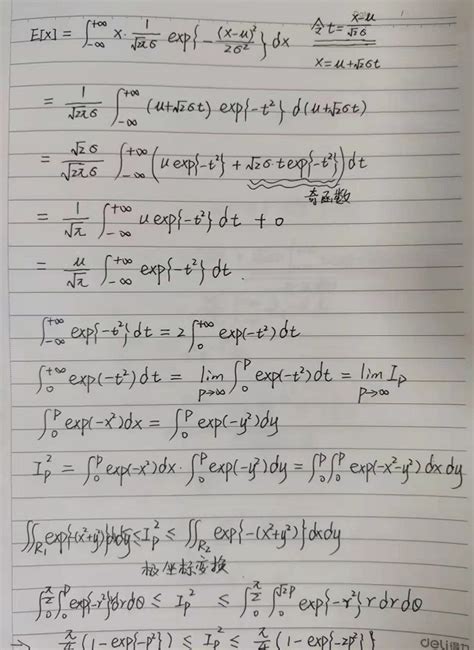 E[x] = ∫_{-∞}^{+∞} x · \frac{1}{\sqrt{2π}σ} exp{-\frac{(x-μ)^2}{2σ^2}} dx 令 t = \frac{x-μ}{\sqrt{2}σ}
x = μ+\sqrt{2}σt
= \frac{1}{\sqrt{2π}σ} ∫_{-∞}^{+∞} (μ+\sqrt{2}σt) exp{-t^2} d(μ+\sqrt{2}σt)
= \frac{\sqrt{2}σ}{\sqrt{2π}σ} ∫_{-∞}^{+∞} (μ exp{-t^2} + \sqrt{2}σ t exp{-t^2}) dt
奇函数
= \frac{1}{\sqrt{π}} ∫_{-∞}^{+∞} μ exp{-t^2} dt + 0
= \frac{μ}{\sqrt{π}} ∫_{-∞}^{+∞} exp{-t^2} dt.
∫_{-∞}^{+∞} exp{-t^2} dt = 2∫_0^{+∞} exp(-t^2) dt
∫_0^{+∞} exp(-t^2) dt = lim_{p→∞} ∫_0^p exp(-t^2) dt = lim_{p→∞} I_p
∫_0^p exp(-x^2) dx = ∫_0^p exp(-y^2) dy
I_p^2 = ∫_0^p exp(-x^2) dx · ∫_0^p exp(-y^2) dy = ∫_0^p ∫_0^p exp(-x^2-y^2) dx dy
∬_{R_1} exp{-(x^2+y^2)} ≤ I_p^2 ≤ ∬_{R_2} exp{-(x^2+y^2)} dx dy
极坐标变换
∫_0^{\frac{π}{2}} ∫_0^p exp{-r^2} r dr dθ ≤ I_p^2 ≤ ∫_0^{\frac{π}{2}} ∫_0^{\sqrt{2}p} exp{-r^2} r dr dθ
→ \frac{π}{4} (1-exp{-p^2}) ≤ I_p^2 ≤ \frac{π}{4} (1-exp{-2p^2})
deli得力